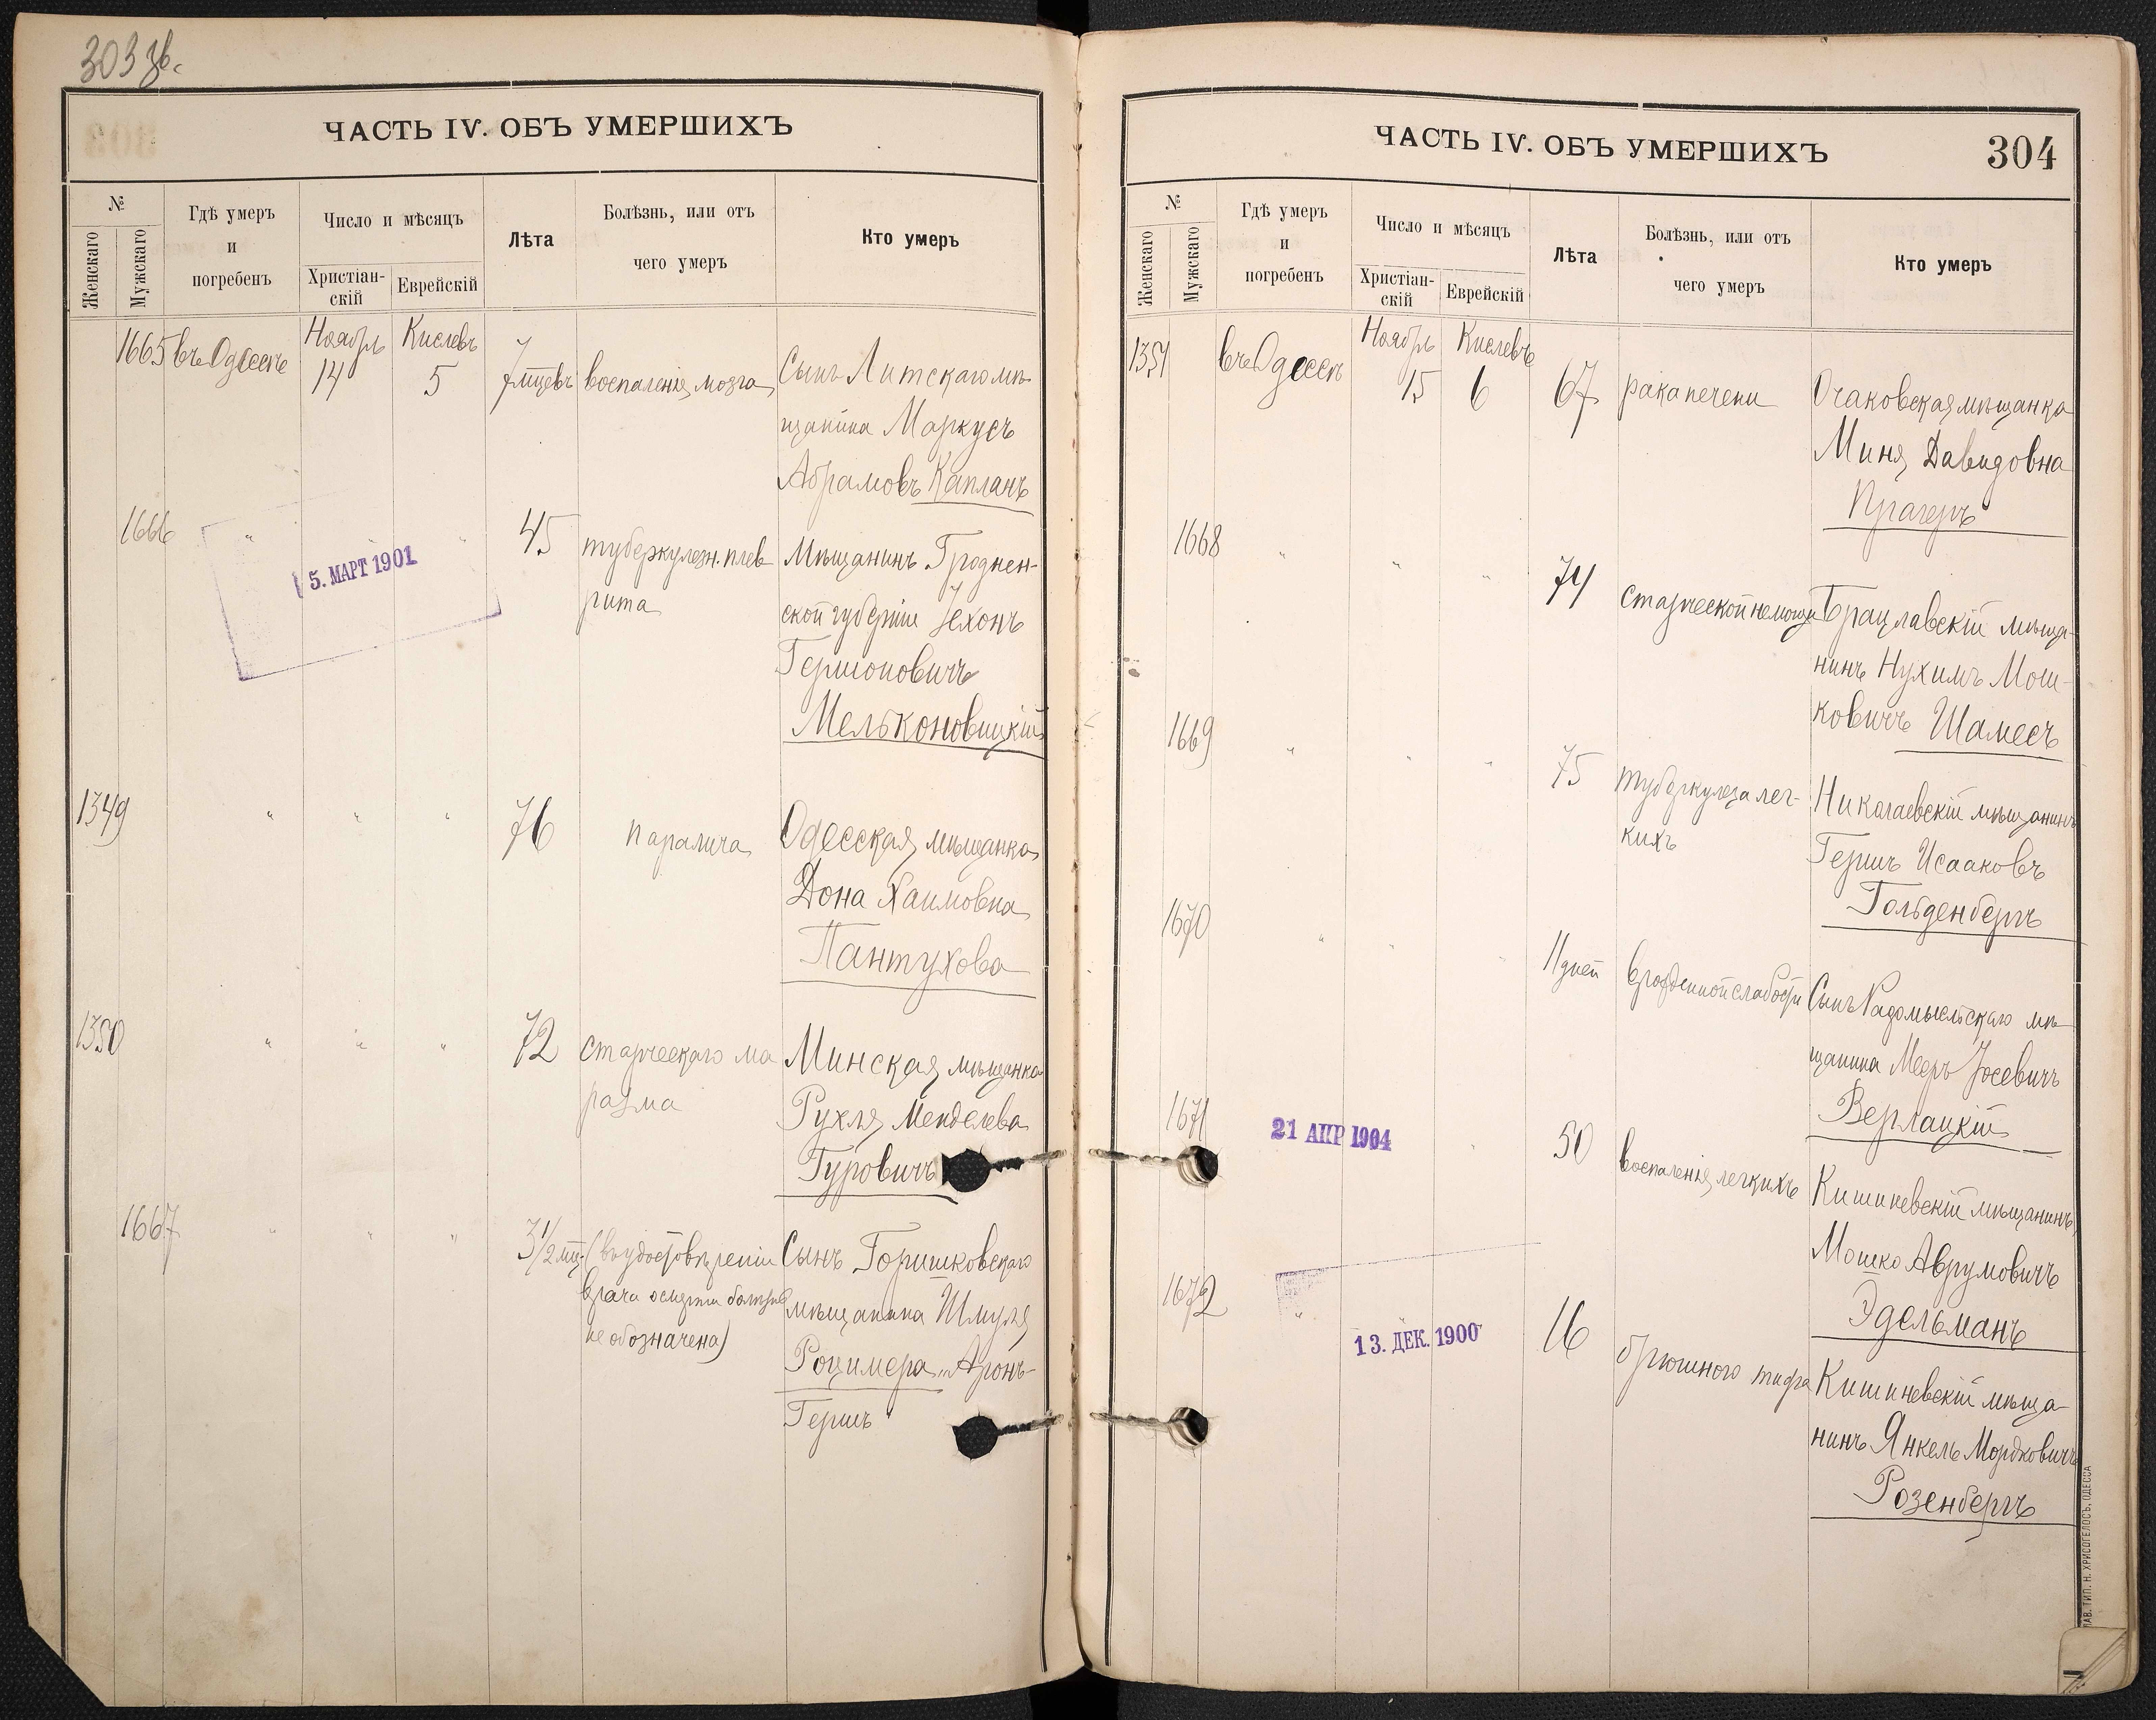 303 зв.
ЧАСТЬ IV. ОБЪ УМЕРШИХЪ
№
Женскаго
Мужскаго
Гдѣ умеръ
и
погребенъ
Число и мѣсяцъ
Христіан-
скій
Еврейскій
Лѣта
Болѣзнь, или отъ
чего умеръ
Кто умеръ
1665 въ Одессѣ Ноябрь 14 Кислевъ 5 7 мцевъ воспаленія мозга Сынъ Липскаго мѣ-
щанина Маркусъ
Абрамовъ Капланъ
1666 " " 45 туберкулезн. плев Мѣщанинъ Гроднен-
рита ской губерніи Іехонъ
Гершоновичъ
Мельконовицкій
5. МАРТ 1901
1349 " " " 76 паралича Одесская мѣщанка
Дона Хаимовна
Пантухова
1350 " " " 72 старческаго ма Минская мѣщанка
разма Рухля Менделева
Гуровичъ
1667 " " " 3 1/2 мц. (въ удостовѣреніи Сынъ Горшковскаго
врача смерти болѣзнь мѣщанина Шмуля
не обозначена) Роцимера „Аронъ-
Гершъ"
ЧАСТЬ IV. ОБЪ УМЕРШИХЪ
304
№
Женскаго
Мужскаго
Гдѣ умеръ
и
погребенъ
Число и мѣсяцъ
Христіан-
скій
Еврейскій
Лѣта
Болѣзнь, или отъ
чего умеръ
Кто умеръ
1351 въ Одессѣ Ноябрь 15 Кислевъ 6 67 рака печени Очаковская мѣщанка
Миня Давидовна
Прагеръ
1668 " " " 74 старческой немощи Брацлавскій мѣща-
нинъ Нухимъ Мош-
ковичъ Шамесъ
1669 " " " 75 туберкулеза лег- Николаевскій мѣщанинъ
кихъ Гершъ Исааковъ
Гольденбергъ
1670 " " " 11 дней врожденной слабости Сынъ Радомысльскаго мѣ-
щанина Мееръ Іосевичъ
Верлацкій
1671 21 АПР 1904 " 50 воспаленія легкихъ Кишиневскій мѣщанинъ
Мошко Аврумовичъ
Эдельманъ
1672 " 13. ДЕК. 1900 16 брюшного тифа Кишиневскій мѣща-
нинъ Янкель Мордковичъ
Розенбергъ
ТИП. Н. ХРИСОГЕЛОСЪ, ОДЕССА